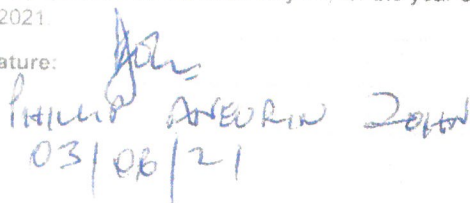 2021.
ature:
PHILLIP ANEURIN JOHN
03/06/21